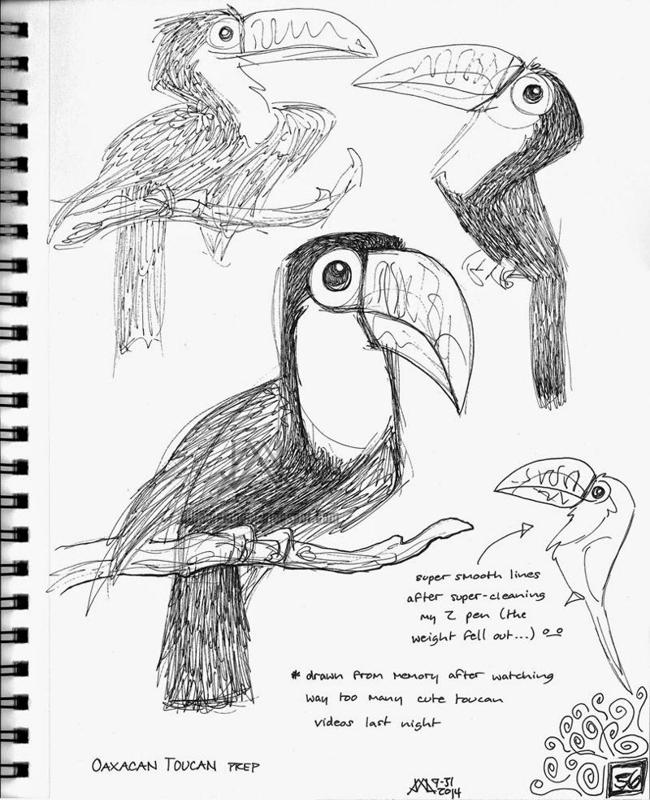 super smooth lines
after super-cleaning
my Z pen (the
weight fell out...)
* drawn from memory after watching
way too many cute toucan
videos last night
OAXACAN TOUCAN PREP
2014
56